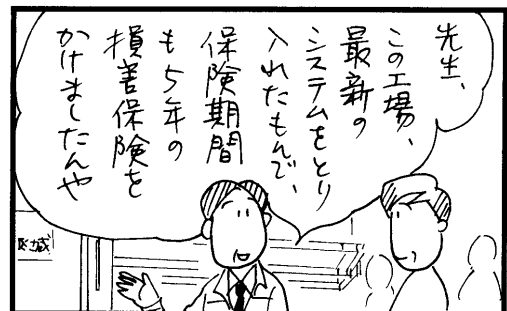 先生、
この工場、
最新の
システムをとり
入れたもんで、
保険期間
も5年の
損害保険を
かけましたんや